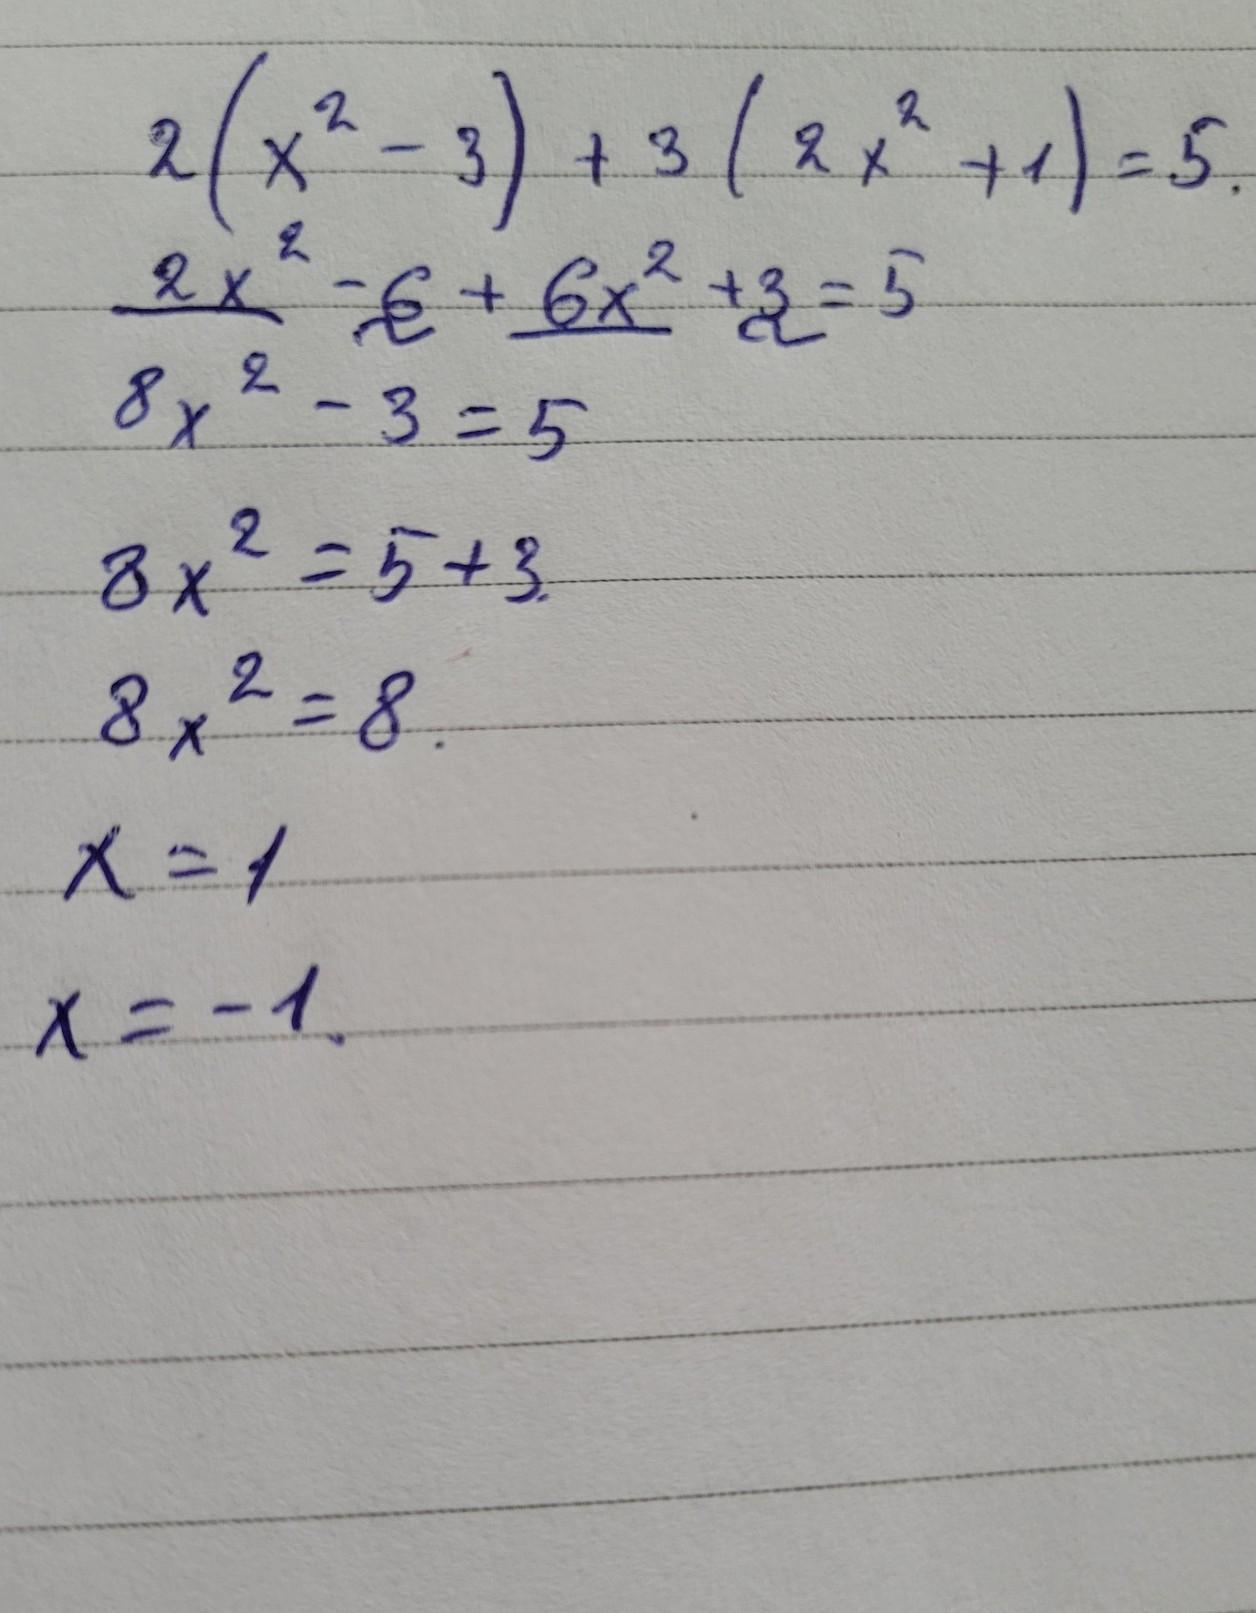 2(x² - 3) + 3(2x² + 1) = 5.
2x² - 6 + 6x² + 3 = 5
8x² - 3 = 5
8x² = 5 + 3.
8x² = 8.
x = 1
x = -1.